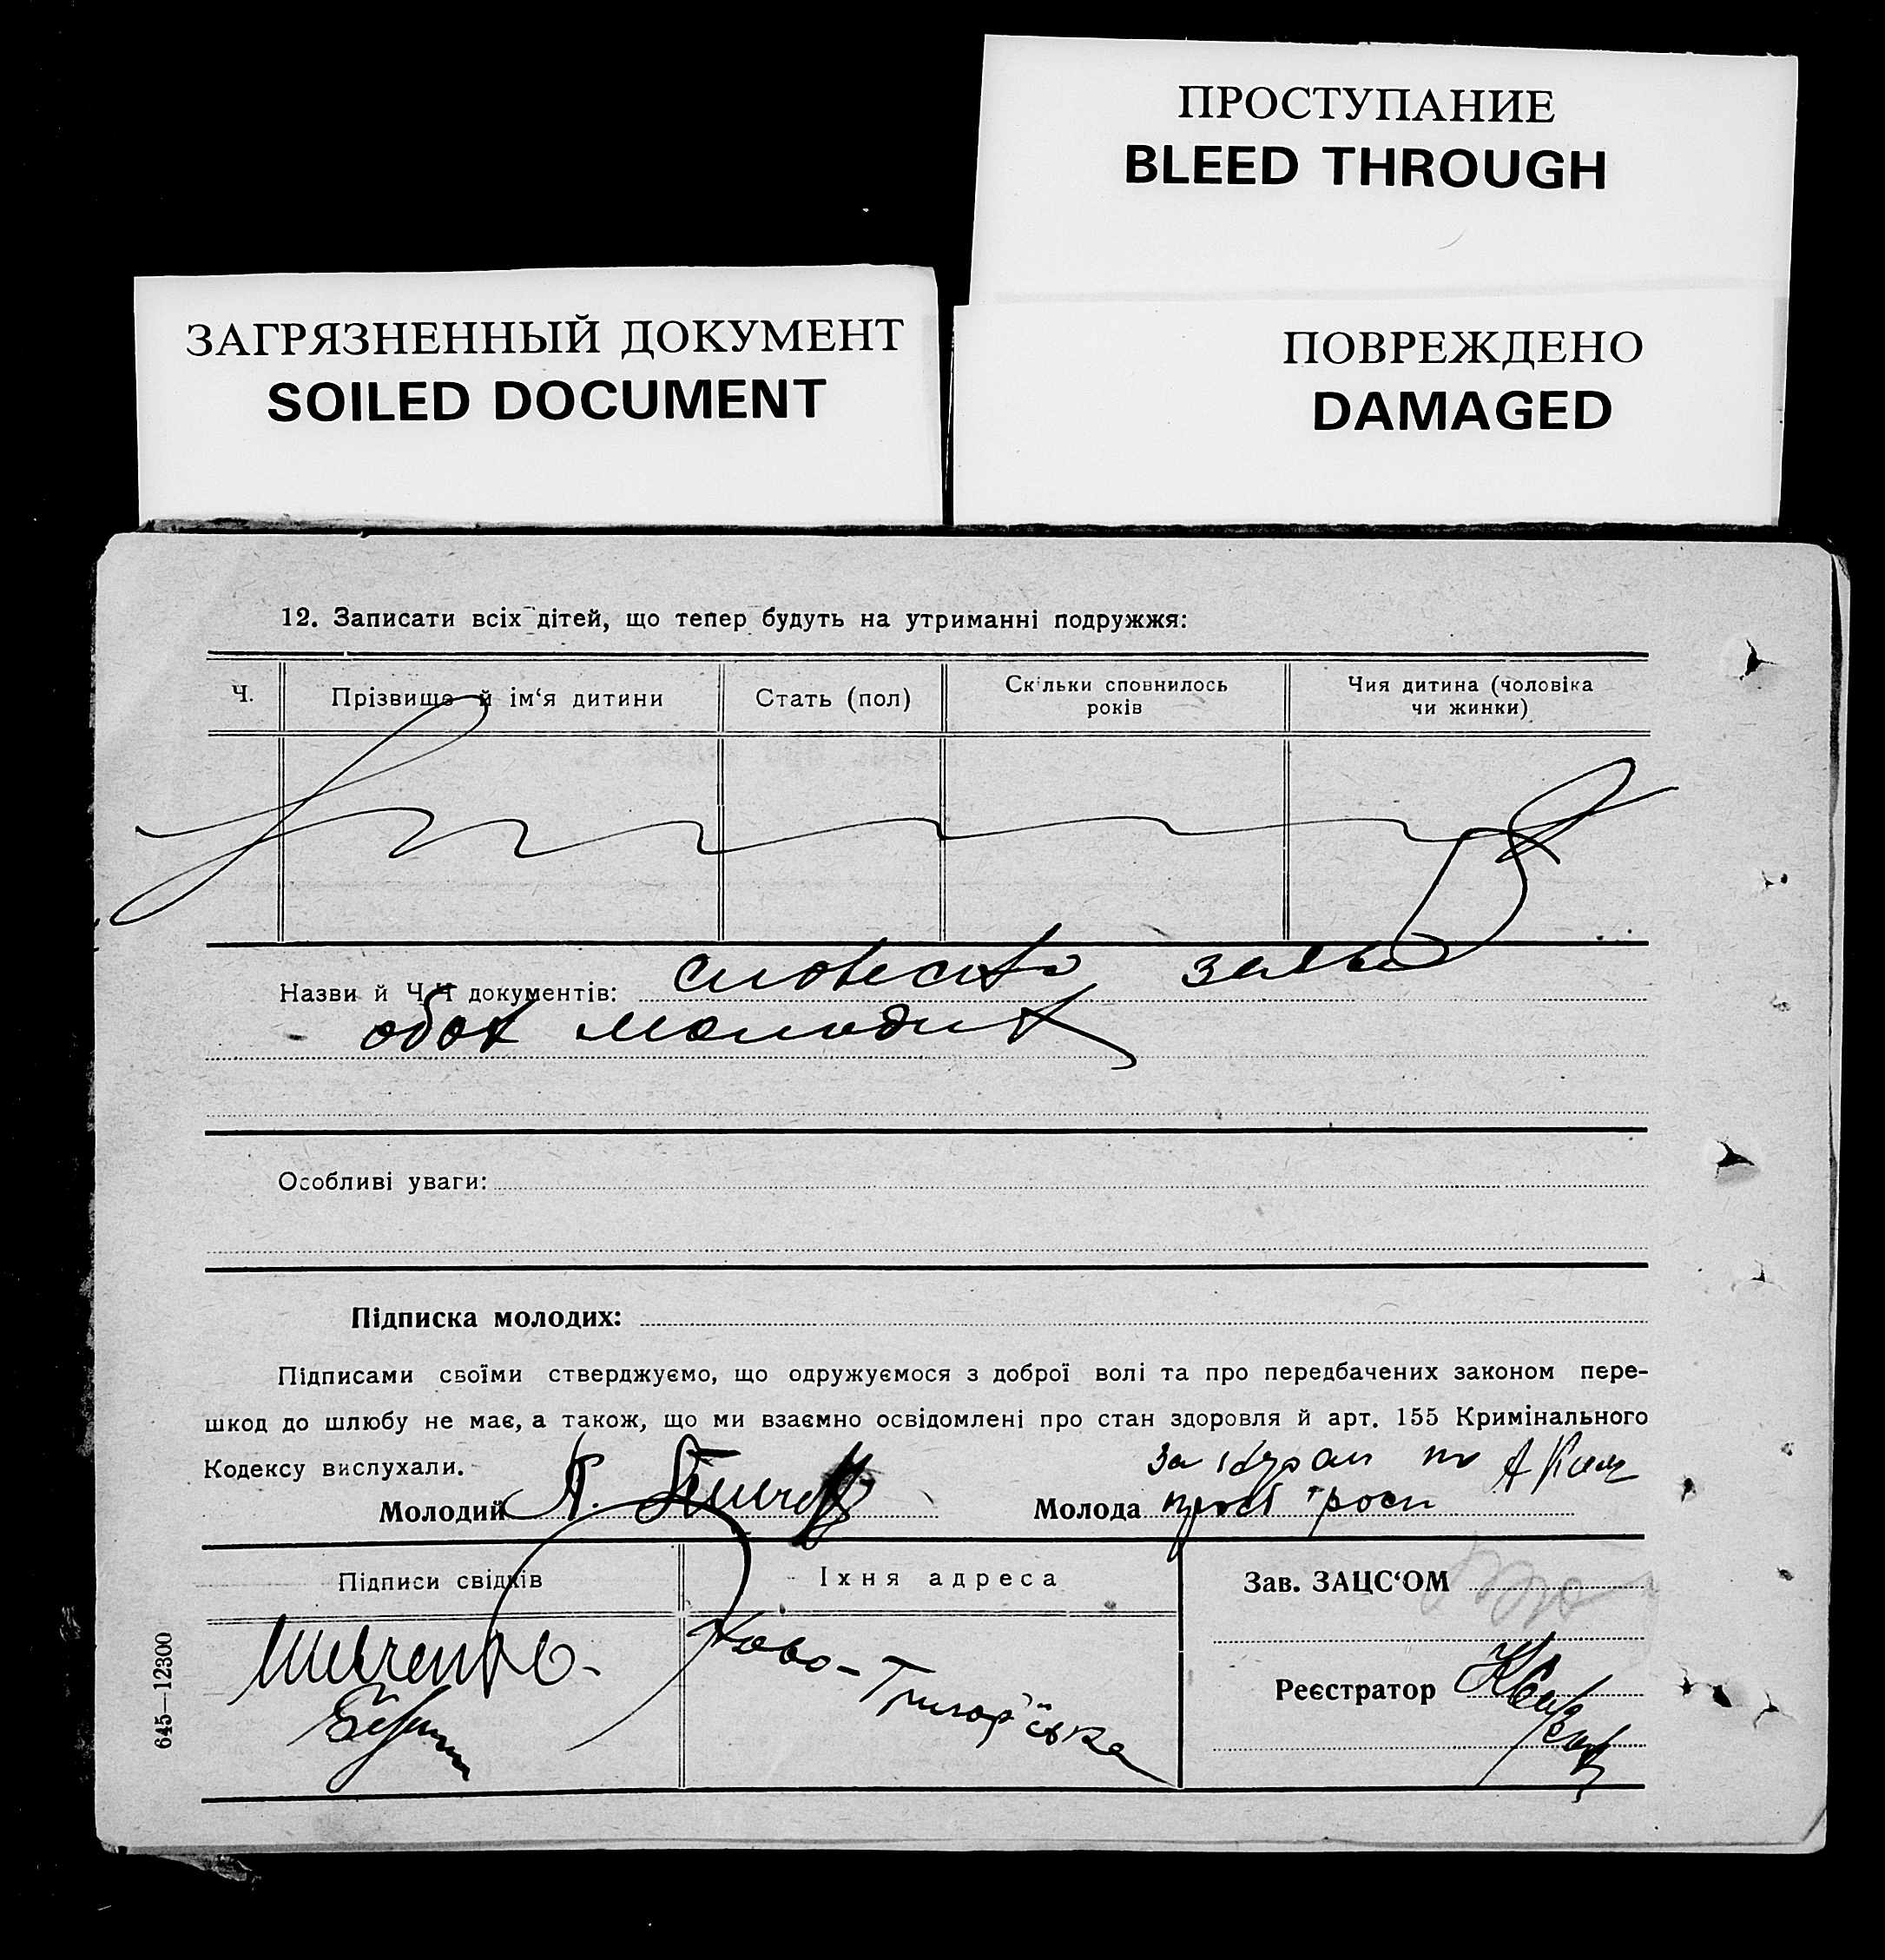 ПРОСТУПАНИЕ
BLEED THROUGH
ЗАГРЯЗНЕННЫЙ ДОКУМЕНТ
SOILED DOCUMENT
ПОВРЕЖДЕНО
DAMAGED
12. Записати всіх дітей, що тепер будуть на утриманні подружжя:
Ч. Прізвище й ім‘я дитини Стать (пол) Скільки сповнилось років Чия дитина (чоловіка чи жинки)
Назви й Ч.Ч документів: словесна заява
обох молодих
Особливі уваги:
Підписка молодих:
Підписами своїми стверджуємо, що одружуємося з доброї волі та про передбачених законом пере-
шкод до шлюбу не має, а також, що ми взаємно освідомлені про стан здоровля й арт. 155 Кримінального
Кодексу вислухали.
Молодий Молода
Підписи свідків Їхня адреса Зав. ЗАЦС‘ОМ
Шевченко Ново-Григор'ївка
Реєстратор
645—12300